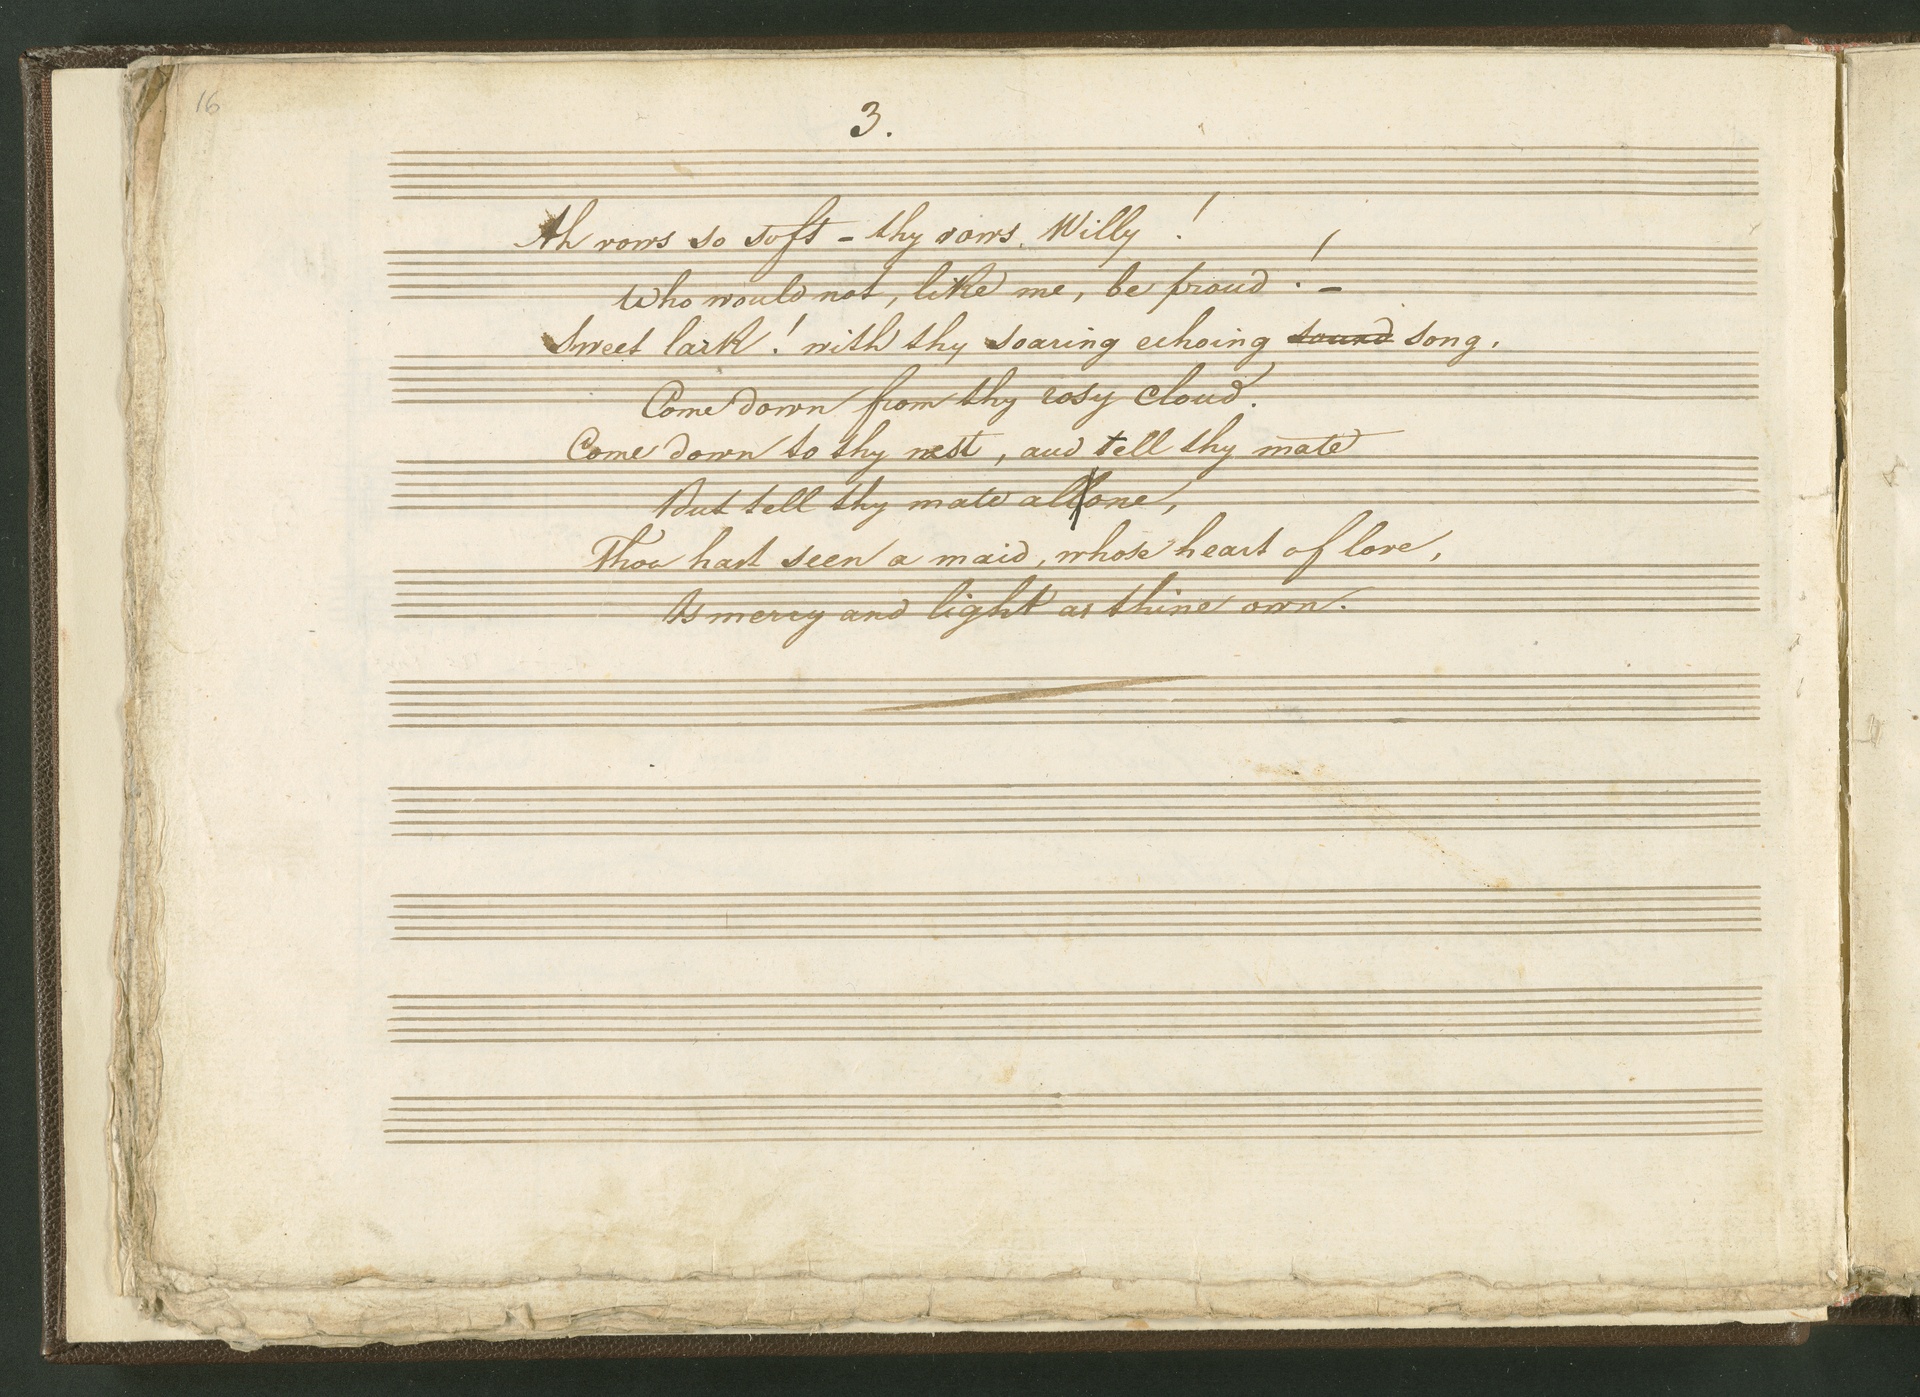 16
3.
Ah vows so soft - thy vows, Willy!
Who would not, like me, be proud! -
Sweet lark! with thy soaring echoing sound song.
Come down from thy rosy cloud.
Come down to thy nest, and tell thy mate
But tell thy mate allone,
Thou hast seen a maid, whose heart of love,
Is merry and light as thine own.